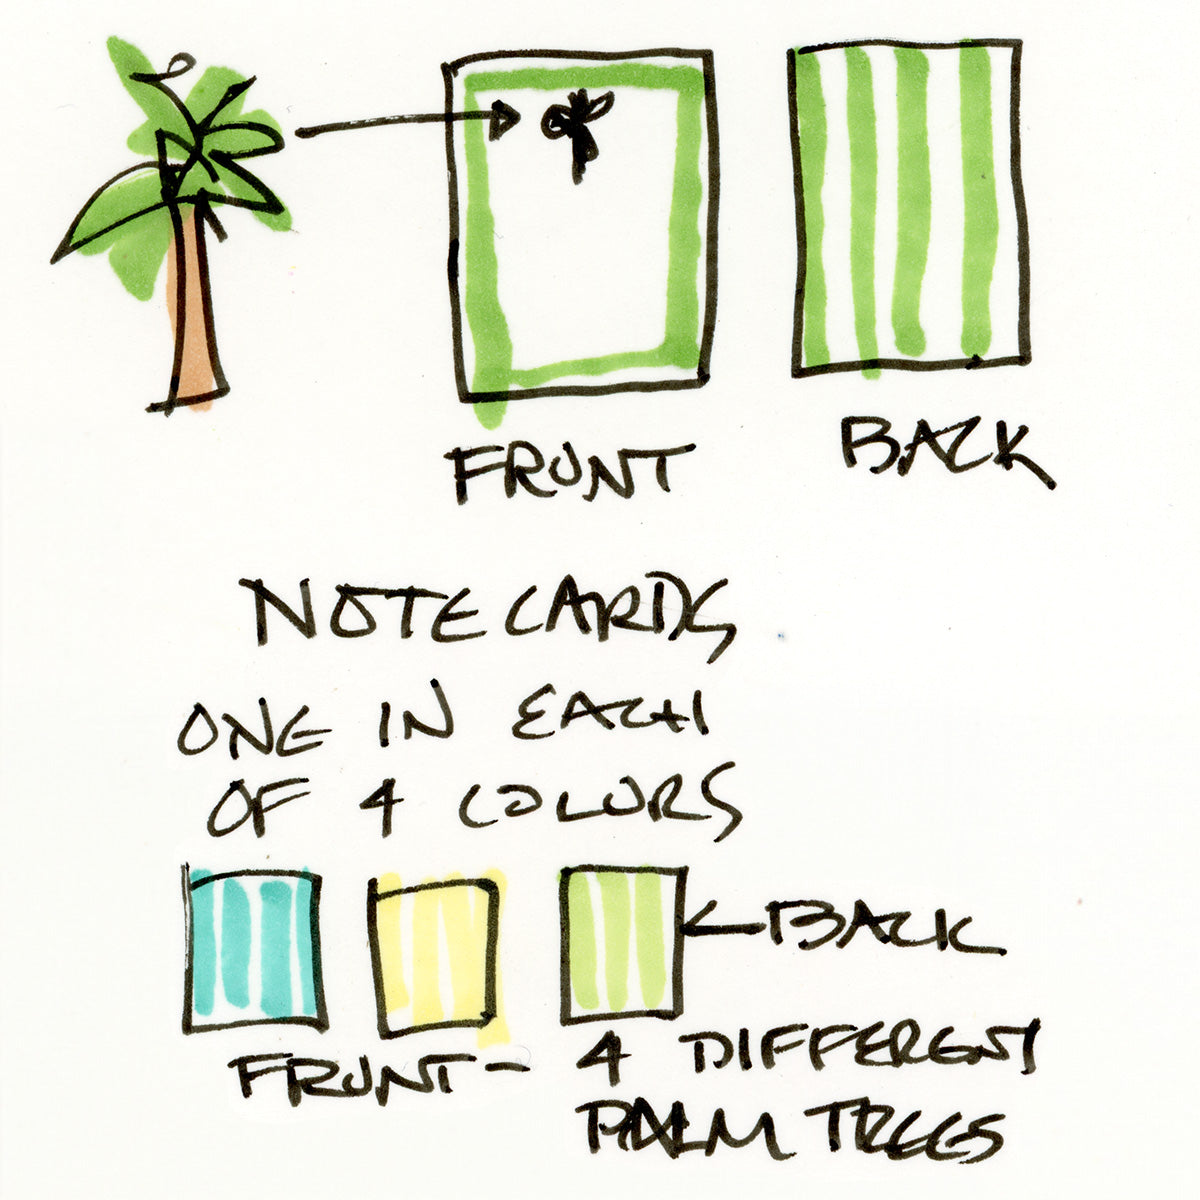 FRONT
BACK
NOTECARDS
ONE IN EACH
OF 4 COLORS
BACK
FRONT- 4 DIFFERENT
PALM TREES